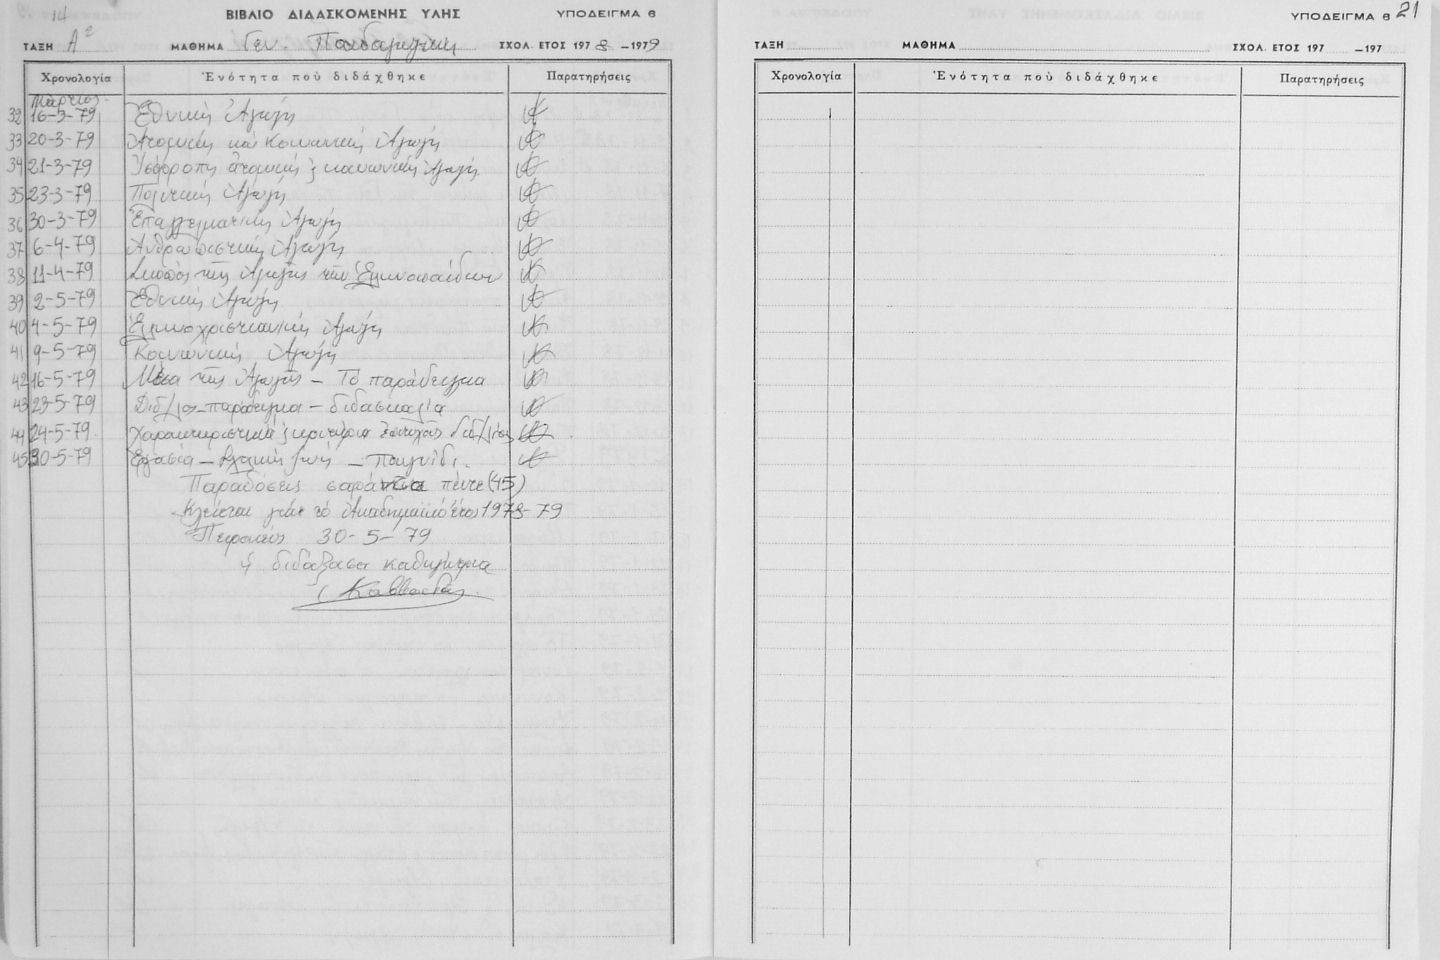 14
ΒΙΒΛΙΟ ΔΙΔΑΣΚΟΜΕΝΗΣ ΥΛΗΣ ΥΠΟΔΕΙΓΜΑ 6
ΤΑΞΗ Α² ΜΑΘΗΜΑ Γεν. Παιδαγωγική ΣΧΟΛ. ΕΤΟΣ 1978-1979
Χρονολογία Ἑνότητα ποὺ διδάχθηκε Παρατηρήσεις
Μάρτιος
32 16-3-79 Ἐθνική Ἀγωγή
33 20-3-79 Ἀτομική καί Κοινωνική Ἀγωγή
34 21-3-79 Ἰσόρροπη ἀτομική & κοινωνική Ἀγωγή
35 23-3-79 Πολιτική Ἀγωγή
36 30-3-79 Ἐπαγγελματική Ἀγωγή
37 6-4-79 Ἀνθρωπιστική Ἀγωγή
38 11-4-79 Σκοπός τῆς Ἀγωγῆς τῶν Ἑλληνοπαίδων
39 2-5-79 Ἐθνική Ἀγωγή
40 4-5-79 Ἑλληνοχριστιανική Ἀγωγή
41 9-5-79 Κοινωνική Ἀγωγή
42 16-5-79 Μέσα τῆς Ἀγωγῆς - Τό παράδειγμα
43 23-5-79 παράδειγμα - διδασκαλία
44 24-5-79 Χαρακτηριστικά & κριτήρια
45 30-5-79 Ἐργασία - Σχολική ζωή - Παιγνίδι.
Παραδόσεις σαράντα πέντε (45)
Κλείεται γιά τό Ἀκαδημαϊκό ἔτος 1978-79
Πειραιεύς 30-5-79
Ἡ διδάξασα καθηγήτρια
21
ΥΠΟΔΕΙΓΜΑ 6
ΤΑΞΗ ΜΑΘΗΜΑ ΣΧΟΛ. ΕΤΟΣ 197 -197
Χρονολογία Ἑνότητα ποὺ διδάχθηκε Παρατηρήσεις